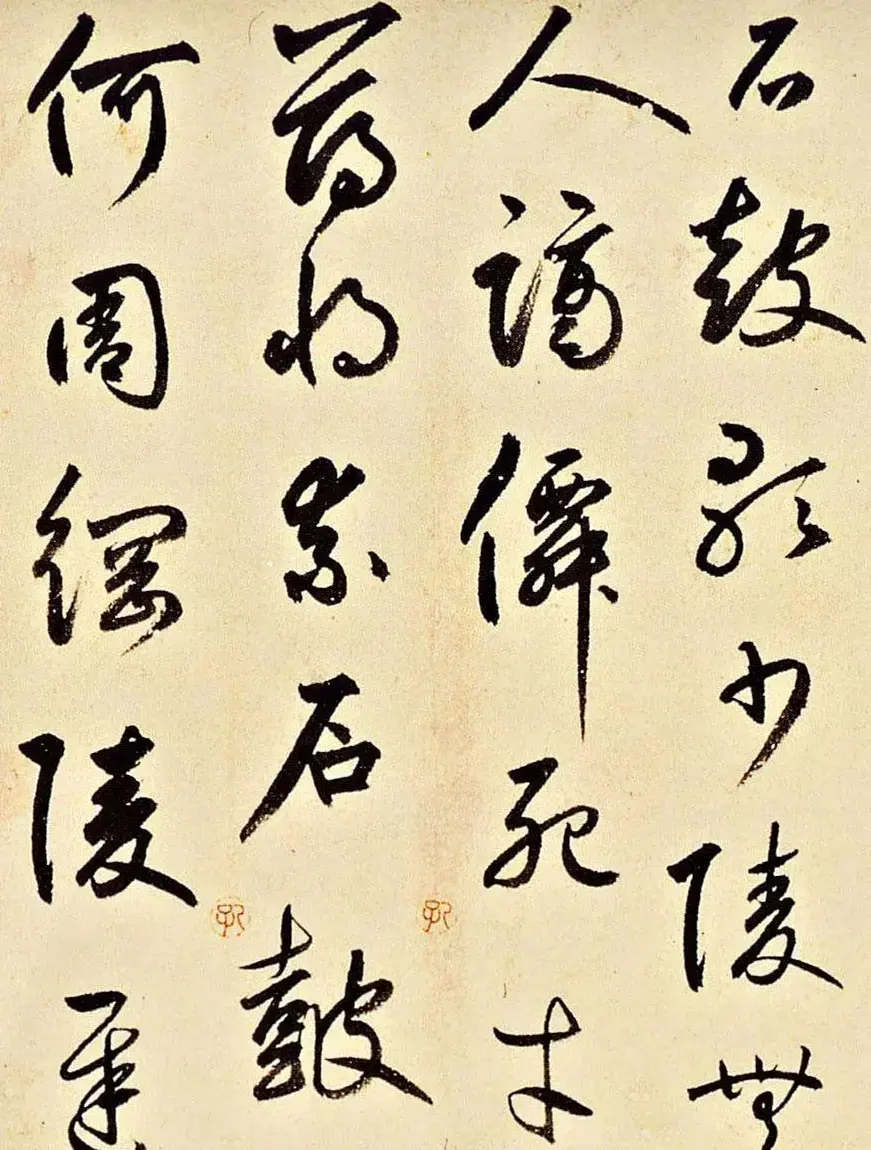 石鼓歌少陵無
人謫僊死才
薄将奈石鼓
何周綱陵遲